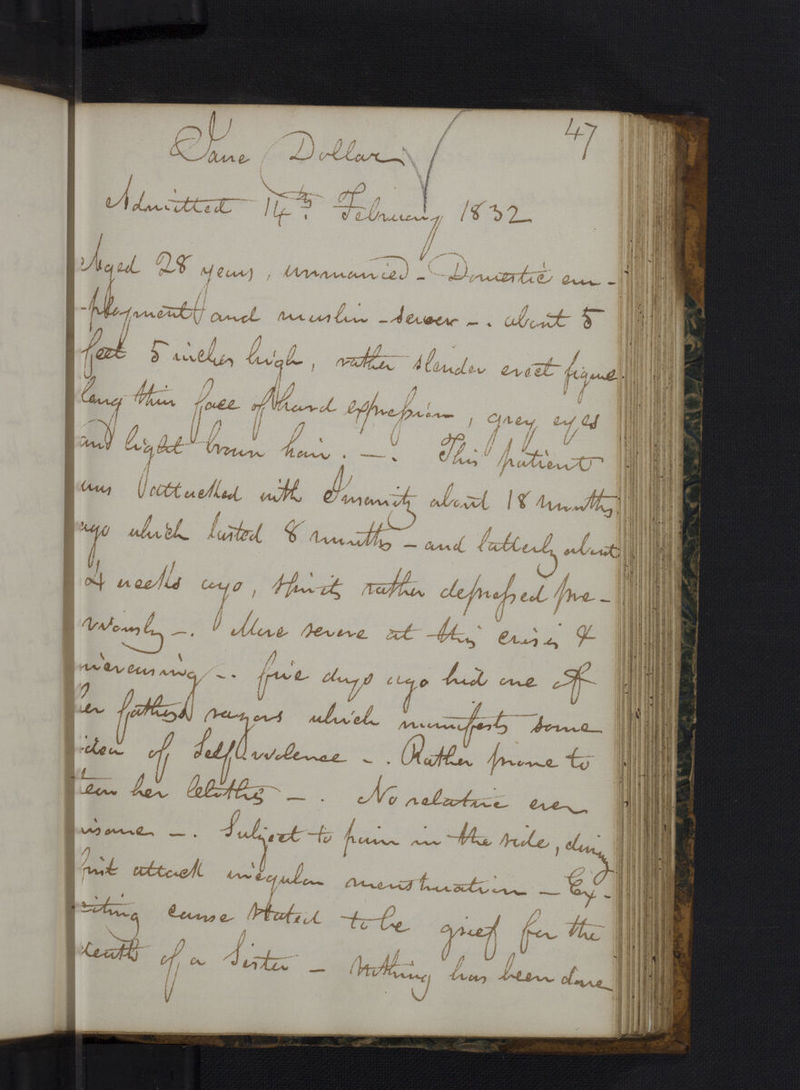 47
Jane Dollar
Admitted 14th. February 1832
Aged 28 years, unmarried - Domestic em-
-ployment and muslin - sewer -. about 5
feet 5 inches high, rather slender erect figure
long thin face of hard expression, grey eyes
and light brown hair. -. This patient
was attacked with Insanity about 18 months
ago which lasted 8 months - and latterly about
4 weeks ago, spirits rather depressed pre-
viously -. More severe at this crisis &
increasing -. five days ago hid one of
her fathers razors which manifests some
idea of Self violence -. Rather prone to
tear her Clothes -. No relative ever
insane -. Subject to pain in the side, during
first attack irregular menstruation - Ex-
citing cause stated to be grief for the
death of a Sister - Nothing has been done